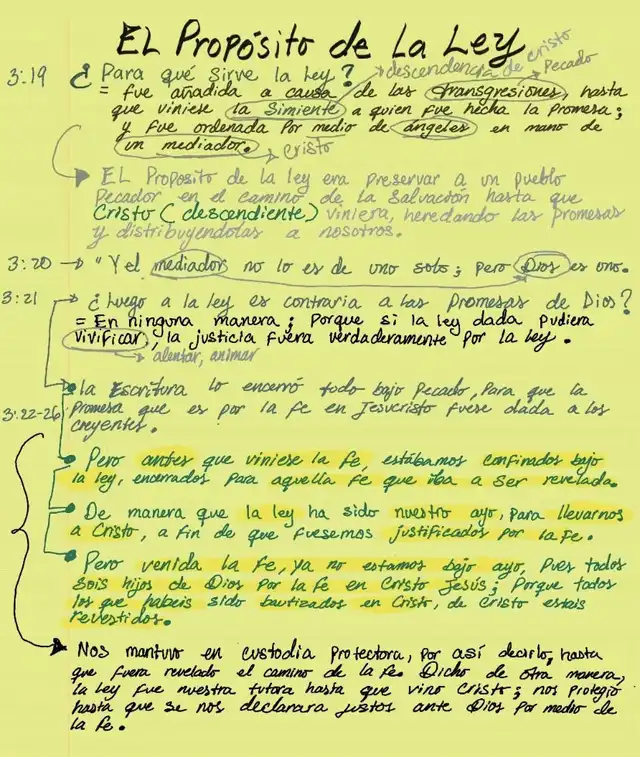 EL Propósito de La Ley
3:19 ¿Para qué sirve la ley? descendencia de cristo Pecado
= fue añadida a causa de las transgresiones, hasta
que viniese la Simiente a quien fue hecha la Promesa;
y fue ordenada por medio de ángeles en mano de
un mediador. cristo
EL Proposito de la ley era preservar a un pueblo
Pecador en el camino de la Salvación hasta que
Cristo (descendiente) viniera, heredando las promesas
y distribuyendolas a nosotros.
3:20 → "Y el mediador no lo es de uno solo; pero Dios es uno.
3:21 ¿Luego a la ley es contraria a las Promesas de Dios?
= En ninguna manera; Porque si la ley dada pudiera
vivificar, la justicia fuera verdaderamente por la ley.
alentar, animar
la Escritura lo encerró todo bajo Pecado, Para que la
3:22-26 Promesa que es por la fe en Jesucristo fuese dada a los
creyentes.
Pero antes que viniese la fe, estábamos confinados bajo
la ley, encerrados para aquella fe que iba a ser revelada.
De manera que la ley ha sido nuestro ayo, para llevarnos
a Cristo, a fin de que fuesemos justificados por la fe.
Pero venida la fe, ya no estamos bajo ayo, Pues todos
sois hijos de Dios por la fe en Cristo Jesús; Porque todos
los que habeis sido bautizados en Cristo, de Cristo estais
revestidos.
Nos mantuvo en custodia protectora, por así decirlo, hasta
que fuera revelado el camino de la fe. Dicho de otra manera,
la ley fue nuestra tutora hasta que vino Cristo; nos protegió
hasta que se nos declarara justos ante Dios por medio de
la fe.